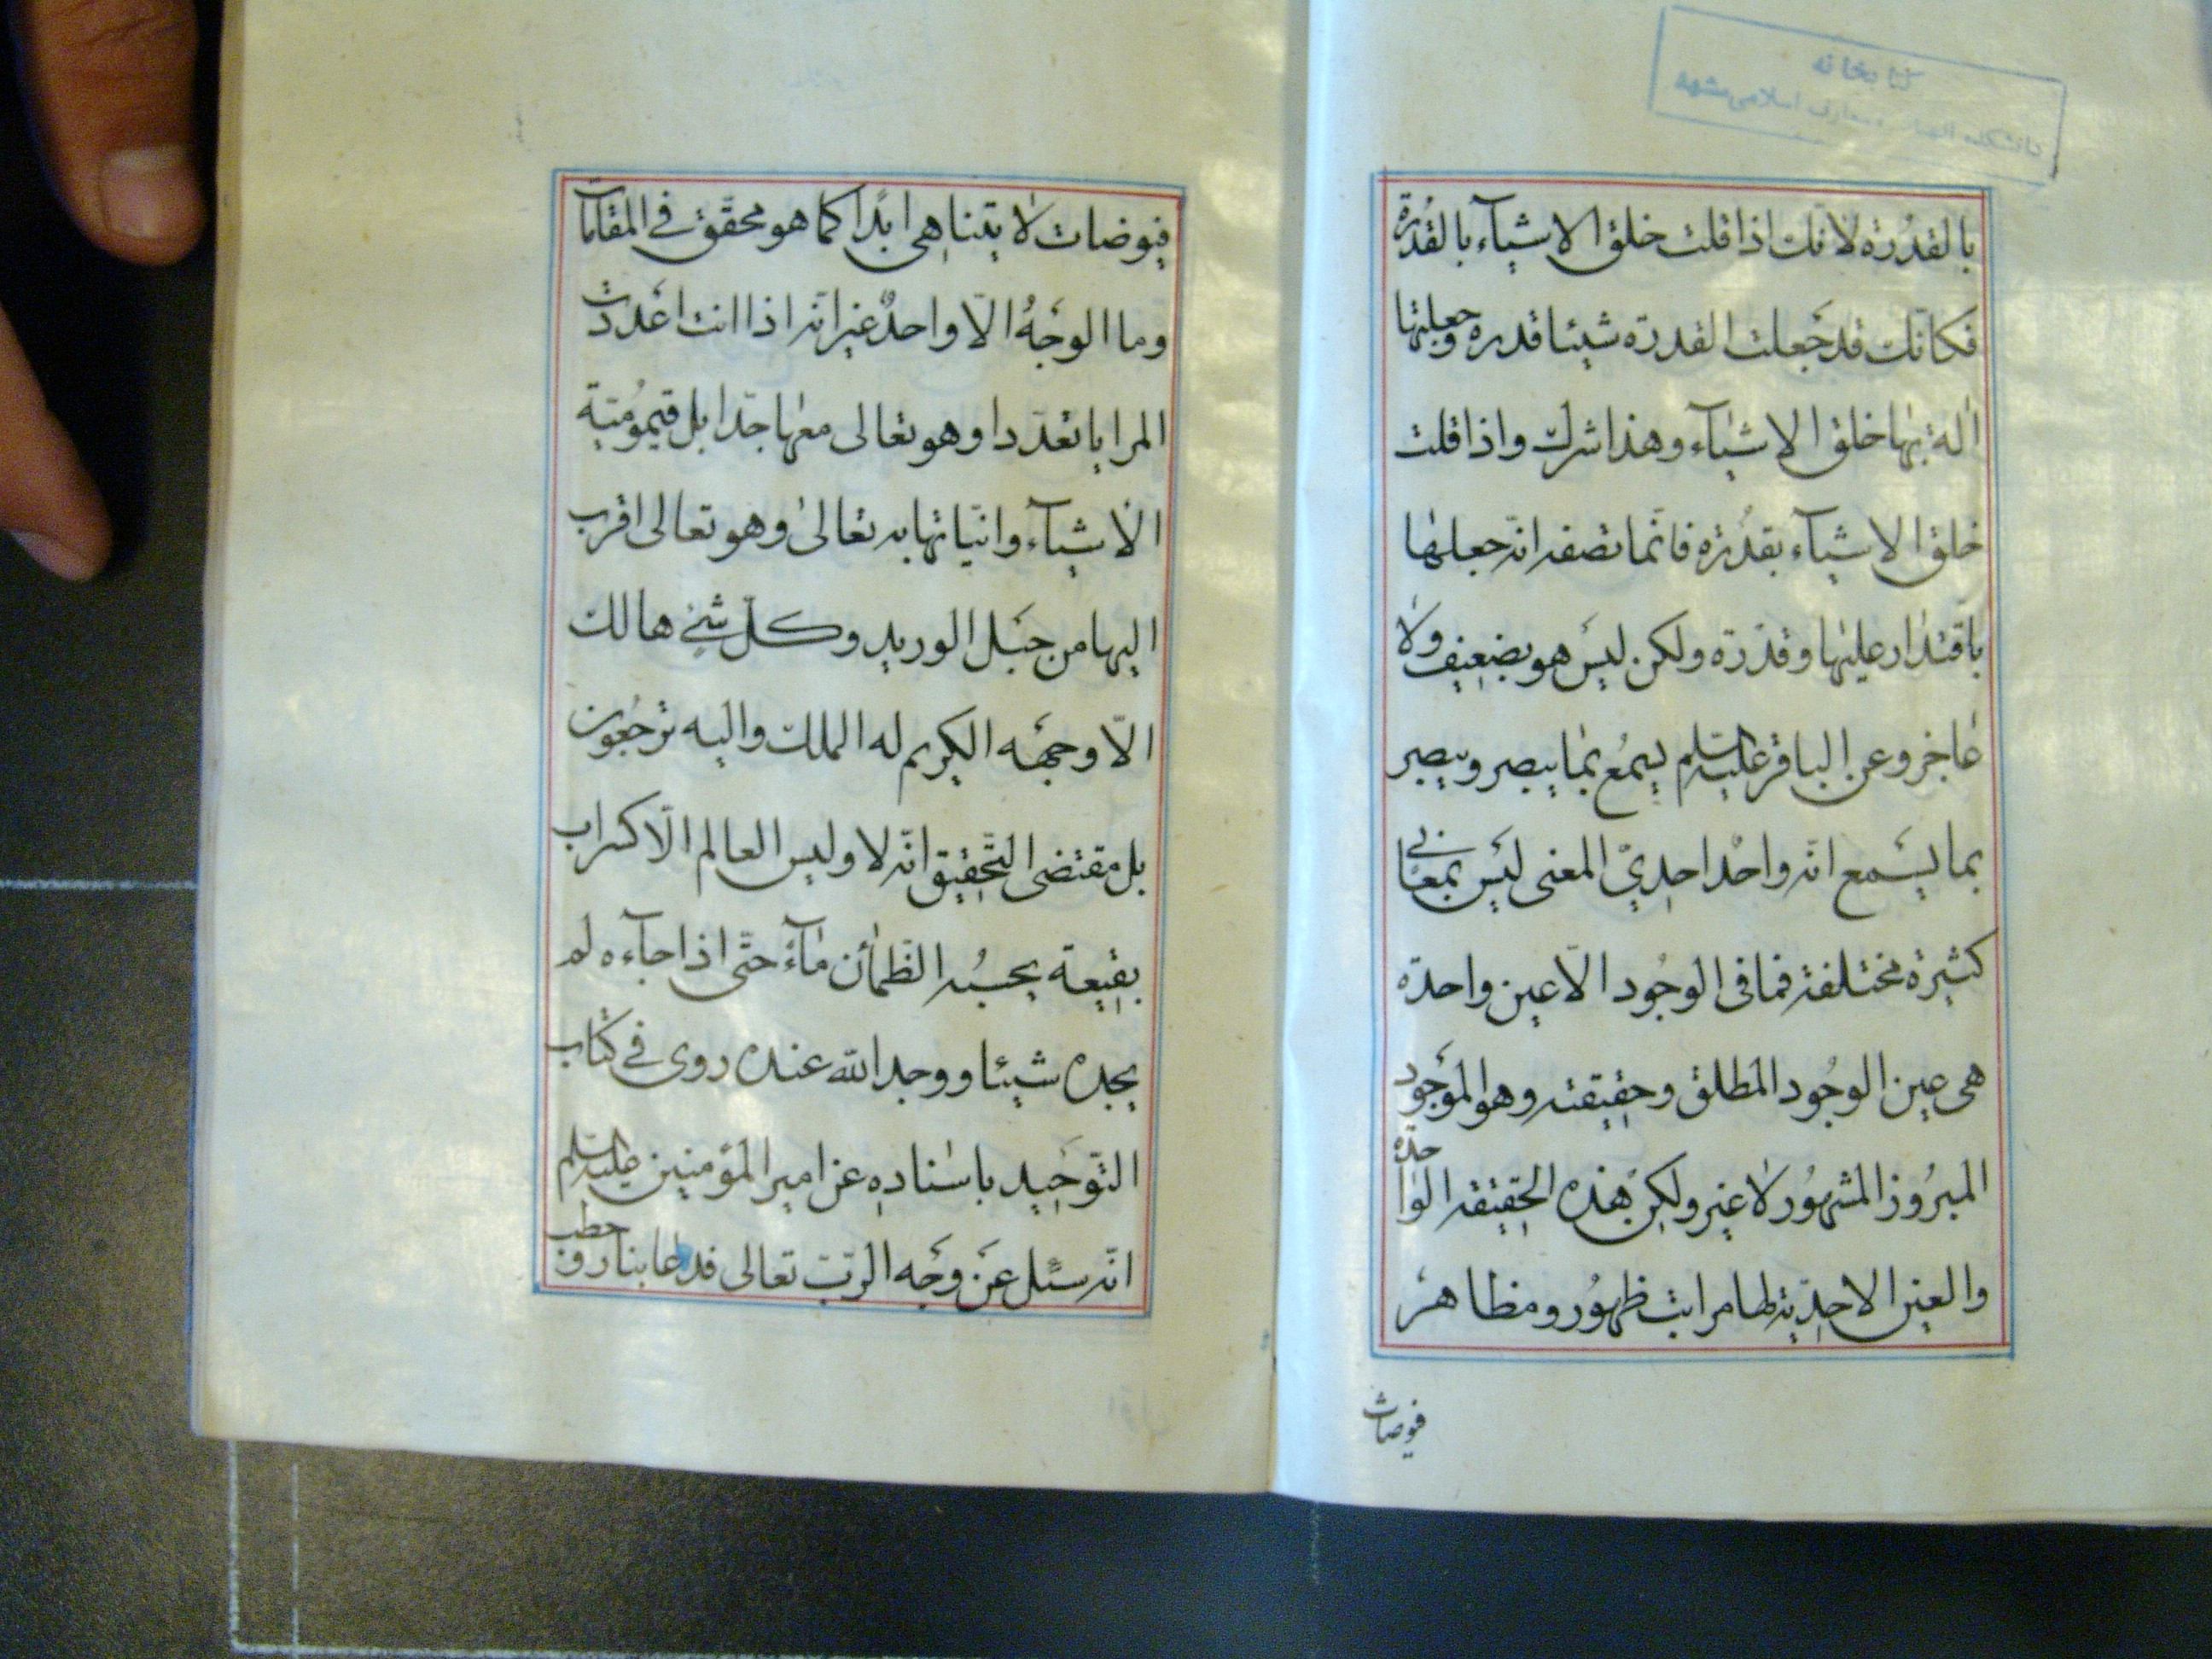 كتابخانه
دانشكده الهيات و معارف اسلامى مشهد
بالقدُرة لانّك اذا قلت خلق الاشيآء بالقدُرة
فكانّك قد جَعلت القدرة شيئا قدره وجعلتها
اٰلة بهٰا خلق الاشيٰآء وهذا شرك واذا قلت
خلق الاشيآء بقدُرة فانّما تصفه انّه جعلهٰا
باقتدٰار عليهٰا وقدْرة ولكن ليسَ هو بضعيف ولٰا
عٰاجز وعن الباقر عليه السّلم يسمُع بمٰا يبصر ويبصر
بما يسَمع انّه واحْد احِديّ المعنى ليَس بمعٰانى
كثيرة مختلفة فما فى الوجُود الّا عين واحدة
هى عين الوجُود المطلق وحقيقته وهو الموَجُود
المبرُوز المشهوُر لاٰ غير ولكِن هٰذه الحقيقة الواٰحدة
والعين الاحدّية لها مراتب ظهوُر ومظاهر
فيوضات
فيوضات لاٰ يتناهِى ابدًا كما هو محقّق فى المقامٰات
وما الوجَهُ الّا واحدٌ غير انّه اذا انت اعَددت
المرايا تعدّدا وهو تعالى معهٰا جدّا بل قيموُميّة
الاٰشيآء وانيّاتها به تعالىٰ وهو تعالى اقرب
اليها من حبَل الوريد وكلّ شىْء هالك
الّا وجَهه الكريم له الملك واليه ترجعُون
بل مقتضى التّحقيق انّه لا وليس العالم الّا كسراب
بقيعة يحسبُه الظّمأن مٰآءً حتّى اذا جآءه لم
يجده شيئا ووجد اللّه عنده روى فى كتاب
التّوَحيد باسنٰادِه عن امير المؤمنين عليه السّلم
انّه سئل عَن وجَه الربّ تعالى فدعا بنار وحطب